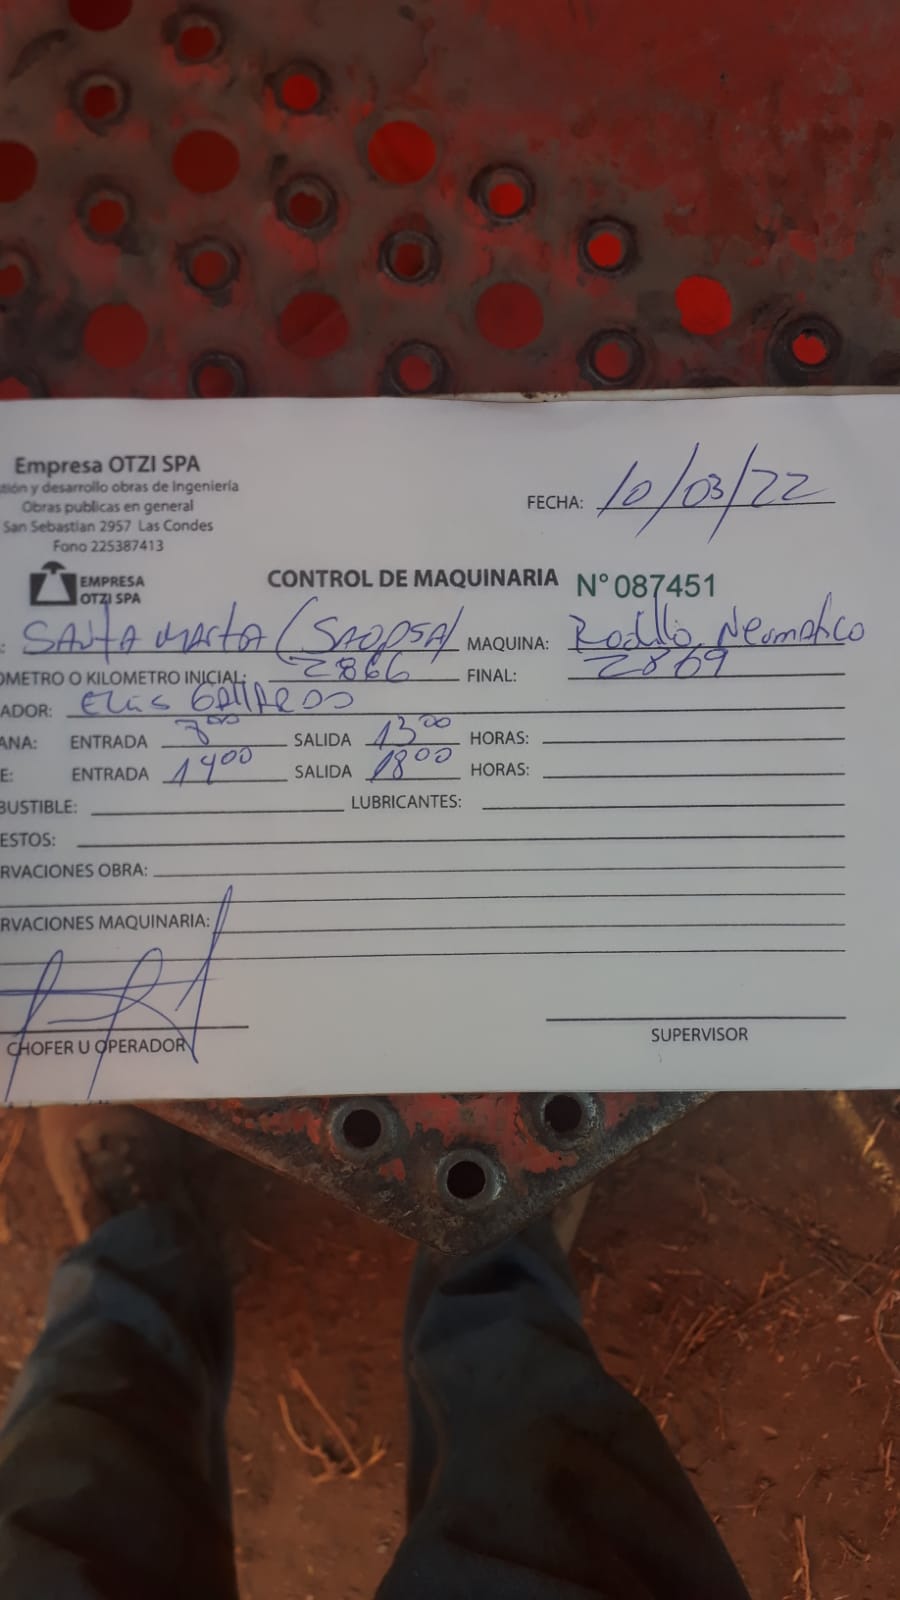 Empresa OTZI SPA
stión y desarrollo obras de Ingeniería
Obras publicas en general
San Sebastian 2957 Las Condes
Fono 225387413
FECHA: 10/03/22
EMPRESA
OTZI SPA
CONTROL DE MAQUINARIA N° 087451
: SANTA MARTA ( MAQUINA: Rodillo Neumatico
OMETRO O KILOMETRO INICIAL: 2866 FINAL: 2869
ADOR: ELIAS GALLARDO
ANA: ENTRADA 700 SALIDA 1300 HORAS:
E: ENTRADA 1400 SALIDA 1800 HORAS:
BUSTIBLE: LUBRICANTES:
ESTOS:
RVACIONES OBRA:
RVACIONES MAQUINARIA:
CHOFER U OPERADOR
SUPERVISOR